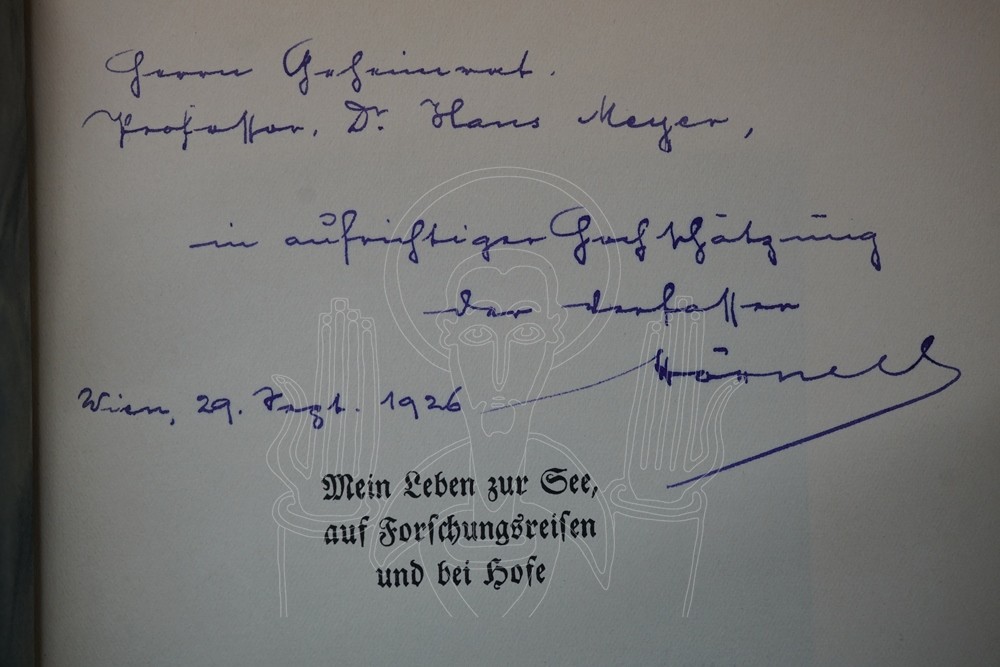 Herrn Geheimrat.
Professor, Dr. Hans Meyer,
in aufrichtiger Hochschätzung
der Verfasser
Wien, 29. Sept. 1926
Mein Leben zur See,
auf Forschungsreisen
und bei Hofe